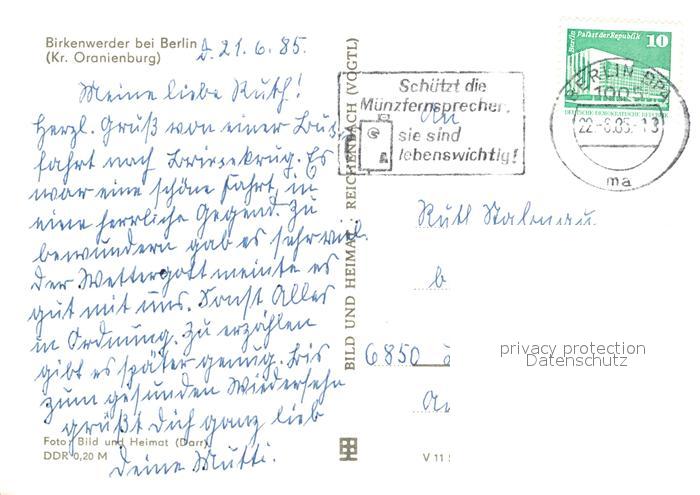 Birkenwerder bei Berlin
(Kr. Oranienburg)
d. 21.6.85.
Meine liebe Ruth!
Herzl. Gruß von einer Bus-
fahrt nach Es
war eine schöne Fahrt, in
eine herrliche Gegend. Zu
bewundern gab es sehr viel.
Der Wettergott meinte es
gut mit uns. Sonst Alles
in Ordnung. Zu erzählen
gibt es später genug. Bis
zum gesunden Wiedersehn
grüßt Dich ganz lieb
Deine Mutti.
Foto: Bild und Heimat (Darr)
DDR 0,20 M
BILD UND HEIMAT REICHENBACH (VOGTL)
Schützt die
Münzfernsprecher,
sie sind
lebenswichtig!
Berlin Palast der Republik 10
DEUTSCHE DEMOKRATISCHE REPUBLIK
BERLIN BPA
1005
22.-6.85.-13
ma
An
Ruth
b
6850
An
V 11
privacy protection
Datenschutz